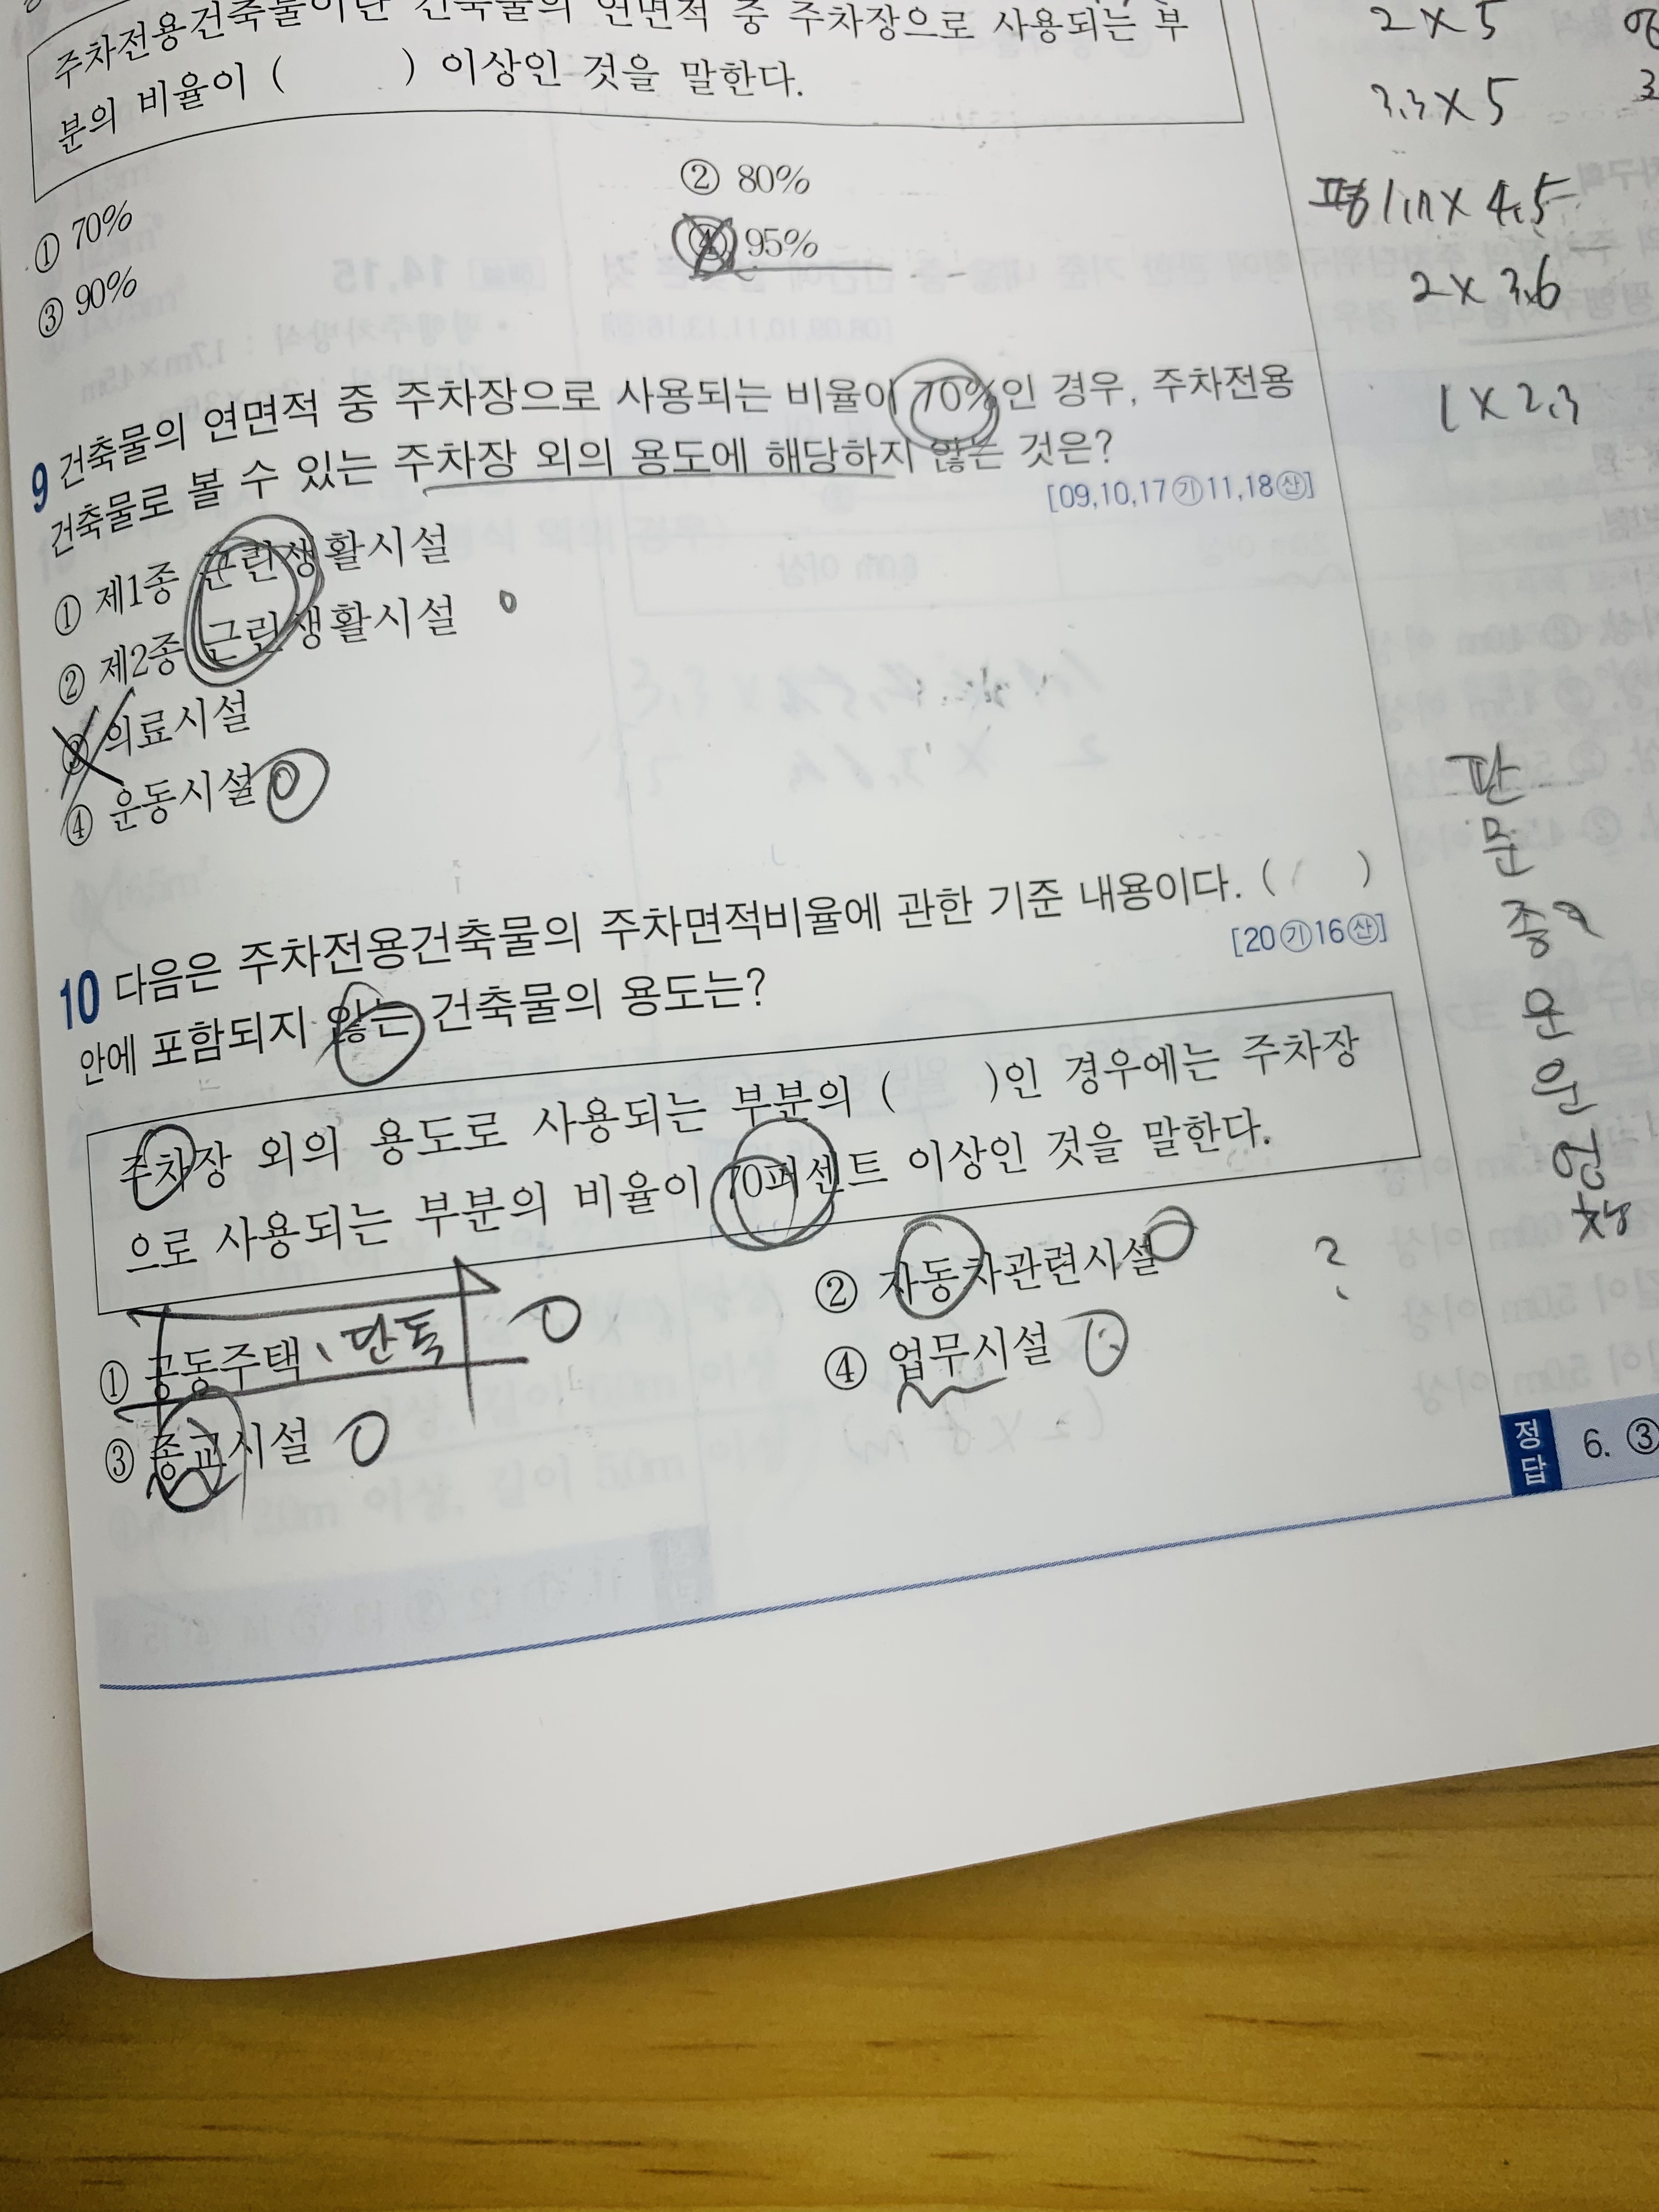 주차전용건축물이란 건축물의 연면적 중 주차장으로 사용되는 부
분의 비율이 ( ) 이상인 것을 말한다.
① 70%
② 80%
③ 90%
④ 95%
9 건축물의 연면적 중 주차장으로 사용되는 비율이 70%인 경우, 주차전용
건축물로 볼 수 있는 주차장 외의 용도에 해당하지 않는 것은?
[09,10,17㉮11,18㉯]
① 제1종 근린생활시설
② 제2종 근린생활시설
③ 의료시설
④ 운동시설
10 다음은 주차전용건축물의 주차면적비율에 관한 기준 내용이다. ( )
안에 포함되지 않는 건축물의 용도는?
주차장 외의 용도로 사용되는 부분의 ( )인 경우에는 주차장
으로 사용되는 부분의 비율이 70퍼센트 이상인 것을 말한다.
① 공동주택、단독
② 자동차관련시설
③ 종교시설
④ 업무시설
?
2 × 5
3.3 × 5
평 1.7 × 4.5
2 × 3.6
1 × 2.3
판
문
종
운
운
업
창
정답 6. ③